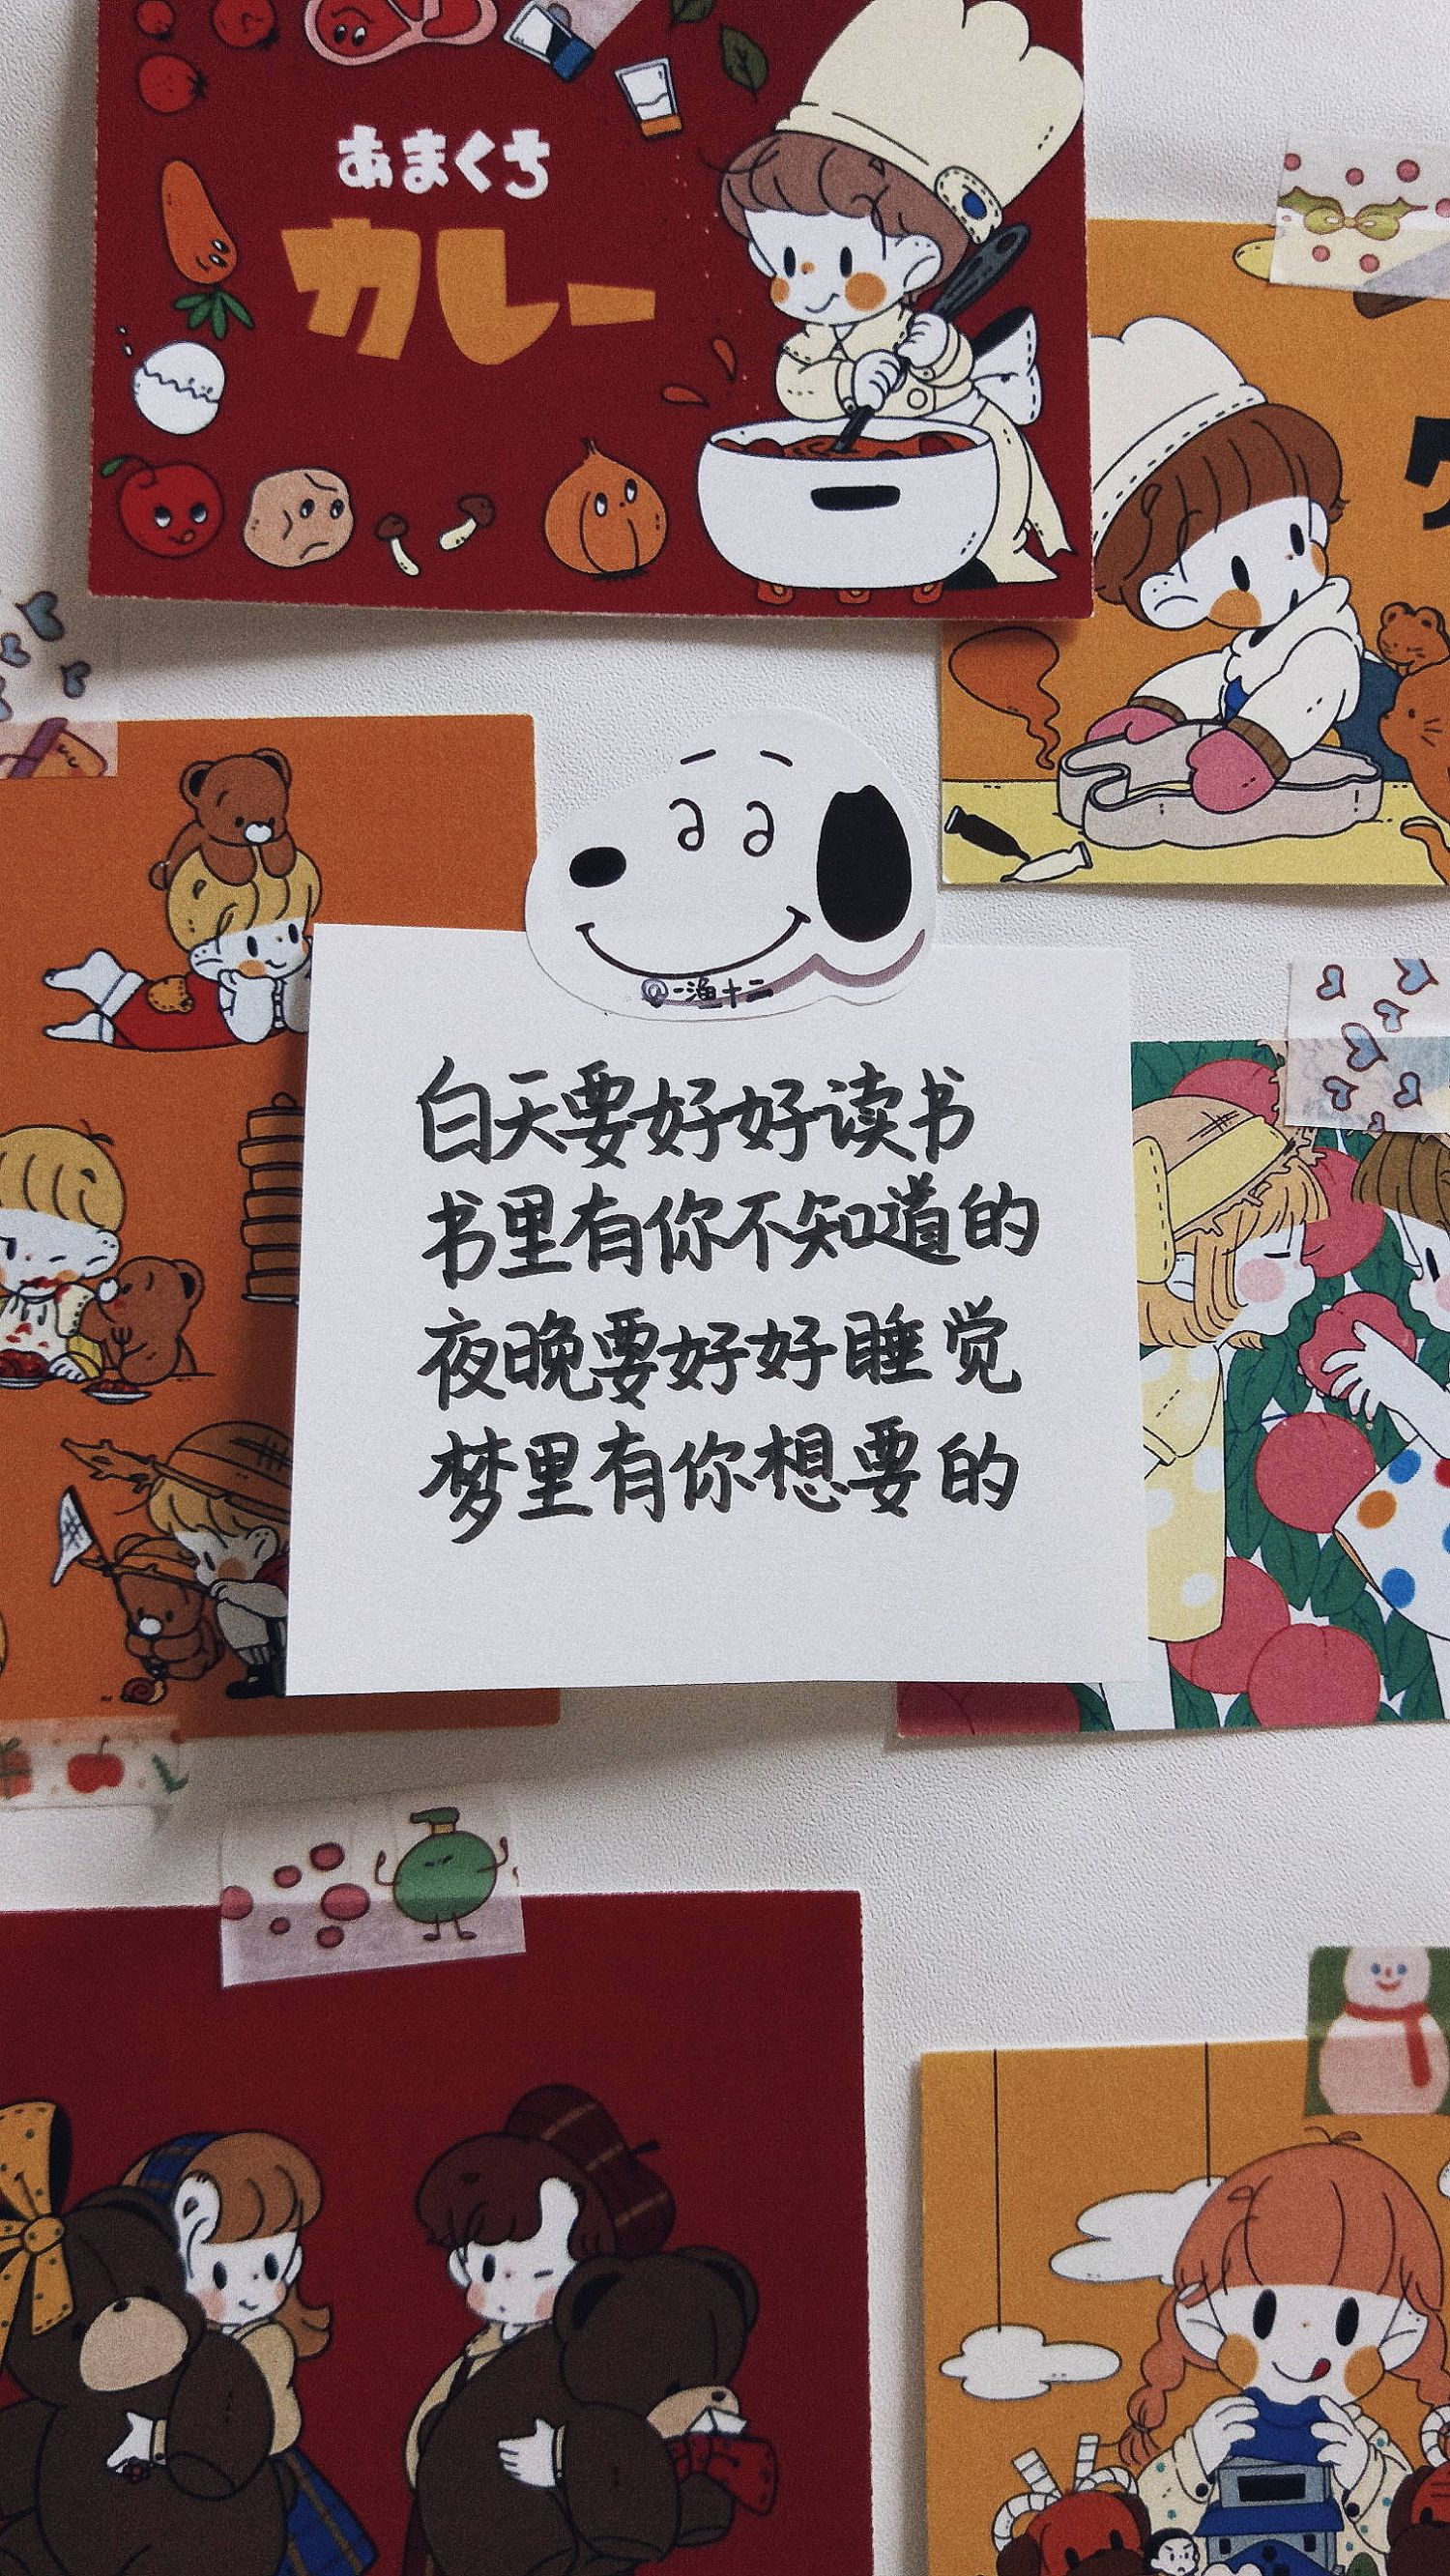 あまくち
カレー
@一渔十二
白天要好好读书
书里有你不知道的
夜晚要好好睡觉
梦里有你想要的